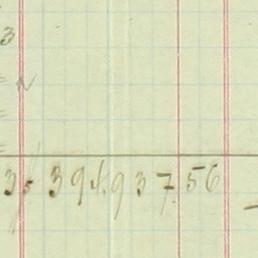 3
35 394.937.56